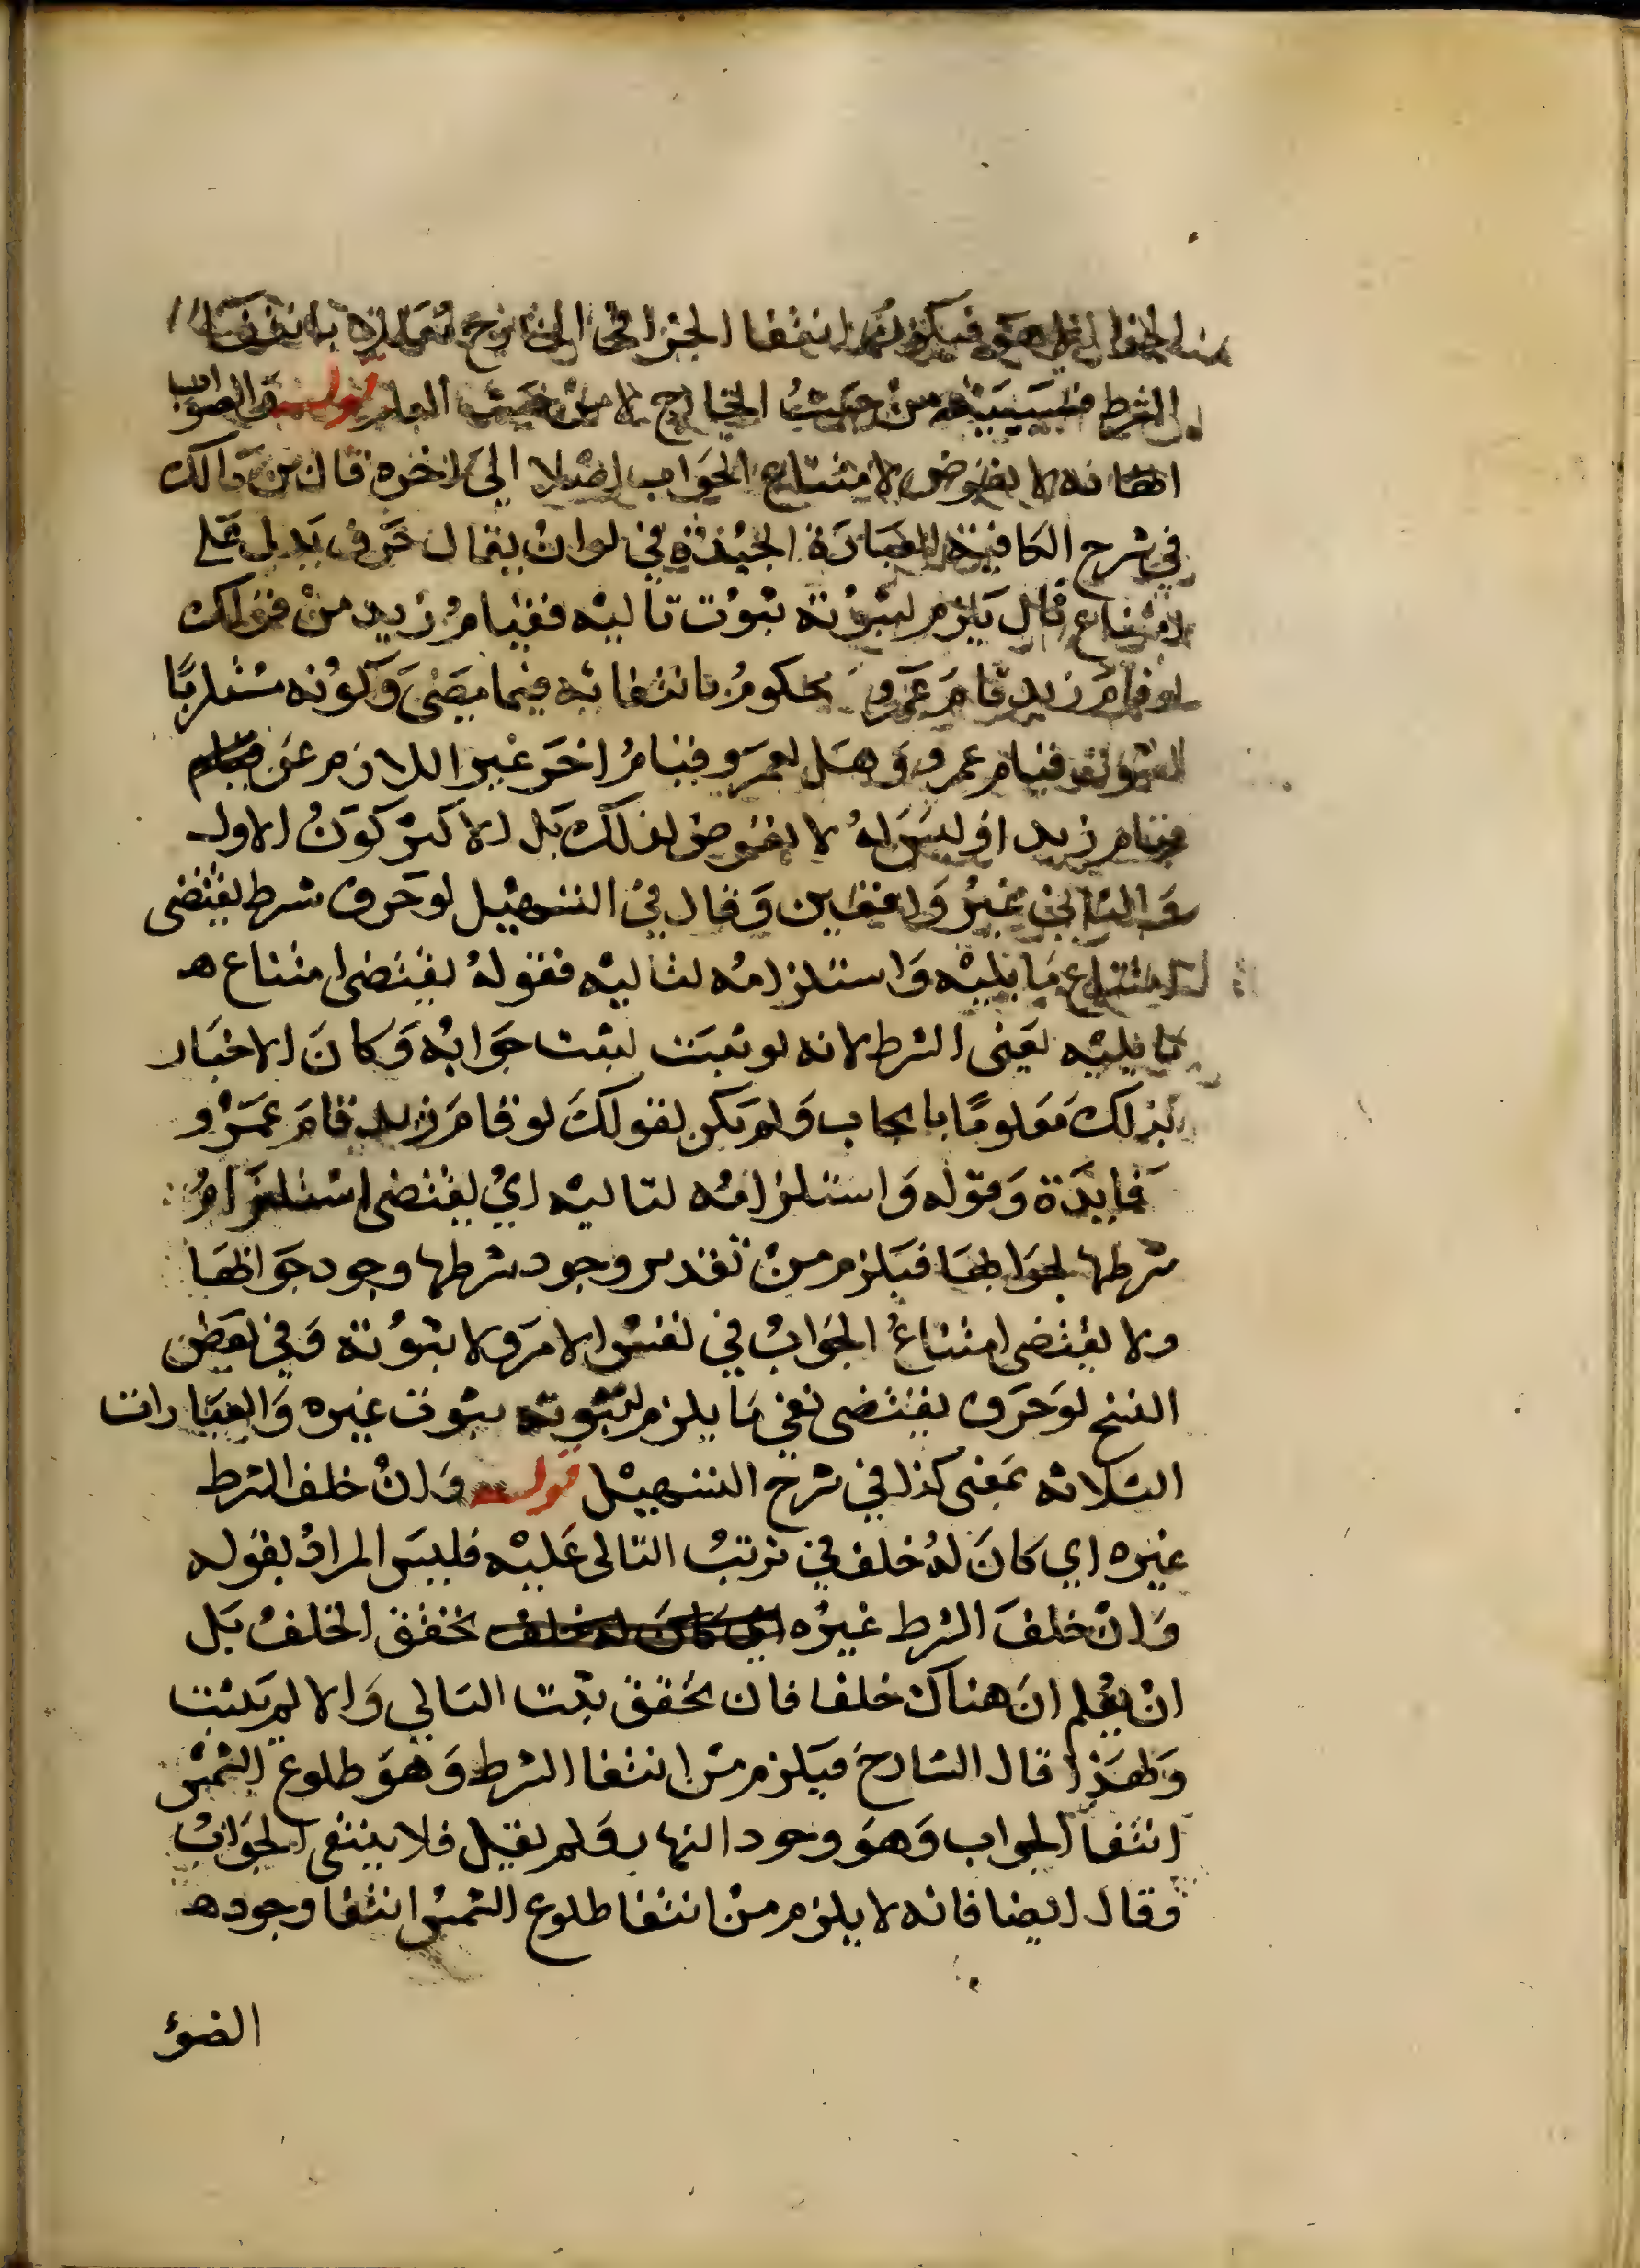 فيكون انتفا الجزا في الخارج معللا بانتفا
الشرط فسببيته من حيث الخارج لا من حيث العلم قوله والصواب
انها لا تعرض لامتناع الجواب اصلا الى اخره قال بن مالك
في شرح الكافية العبارة الجيدة في لو ان يقال حرف يدل على
امتناع تال يلزم لثبوته ثبوت تاليه فقيام زيد من قولك
لو قام زيد قام عمرو محكوم بانتفائه فيما مضى وكونه مستلزما
ثبوته قيام عمرو وهل لعمرو قيام اخر غير اللازم عن
قيام زيد او ليس له لا تعرض لذلك بل الاكثر كون الاول
والثاني غير واقعين وقال في التسهيل لو حرف شرط يقتضي
امتناع ما يليه واستلزامه لتاليه فقوله يقتضي امتناع ه
ما يليه يعني الشرط لانه لو ثبت لثبت جوابه وكان الاخبار
بذلك معلوما بايجاب ولم يكن لقولك لو قام زيد قام عمرو
فايدة وقوله واستلزامه لتاليه اي يقتضي استلزام
شرطها لجوابها فيلزم من تقدير وجود شرطها وجود جوابها
ولا يقتضي امتناع الجواب في نفس الامر ولا ثبوته وفي بعض
النسخ لو حرف يقتضي نفي ما يلزم لثبوته ثبوت غيره والعبارات
الثلاثه بمعنى كذا في شرح التسهيل قوله وان خلف الشرط
غيره اي كان له خلف في ترتب التالي عليه فليس المراد بقوله
وان خلف الشرط غيره اي كان له خلف تحقق الخلف بل
ان يعلم ان هناك خلفا فان تحقق ثبت التالي والا لم يثبت
ولهذا قال الشارح فيلزم من انتفا الشرط وهو طلوع الشمس
انتفا الجواب وهو وجود النهار ولم يقل فلا ينتفي الجواب
وقال ايضا فانه لا يلزم من انتفا طلوع الشمس انتفا وجود ه
الضوء